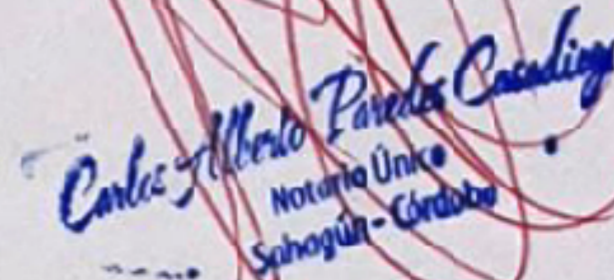 Carlos Alberto Paredes Casadiego
Notario Único
Sahagún - Córdoba